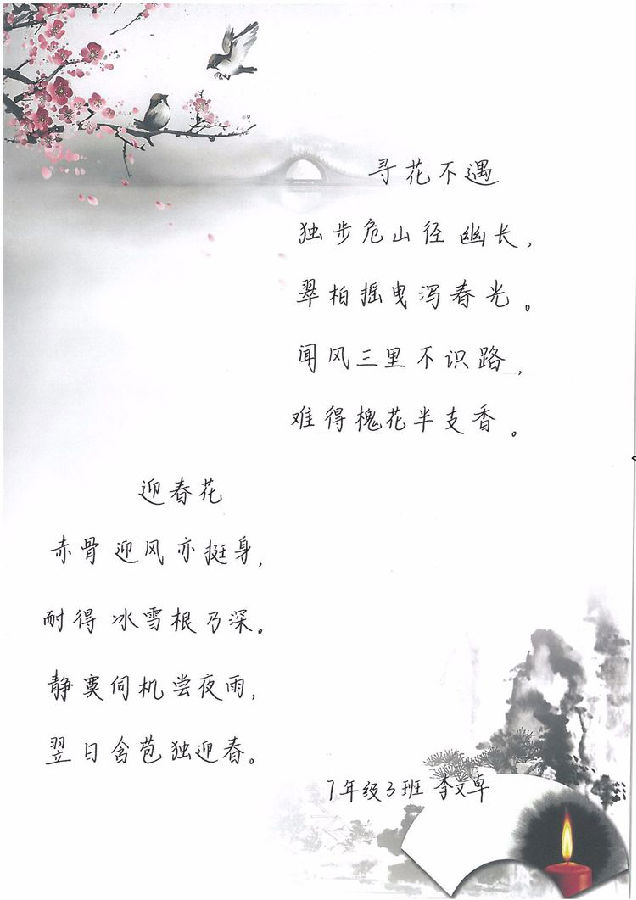 寻花不遇
独步危山径幽长，
翠柏摇曳泻春光。
闻风三里不识路，
难得槐花半支香。
迎春花
赤骨迎风亦挺身，
耐得冰雪根乃深。
静窦伺机尝夜雨，
翌日含苞独迎春。
7年级3班 李文卓